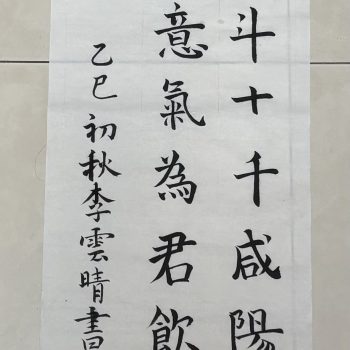 斗十千咸陽
意氣為君飲
乙巳初秋李雲晴書